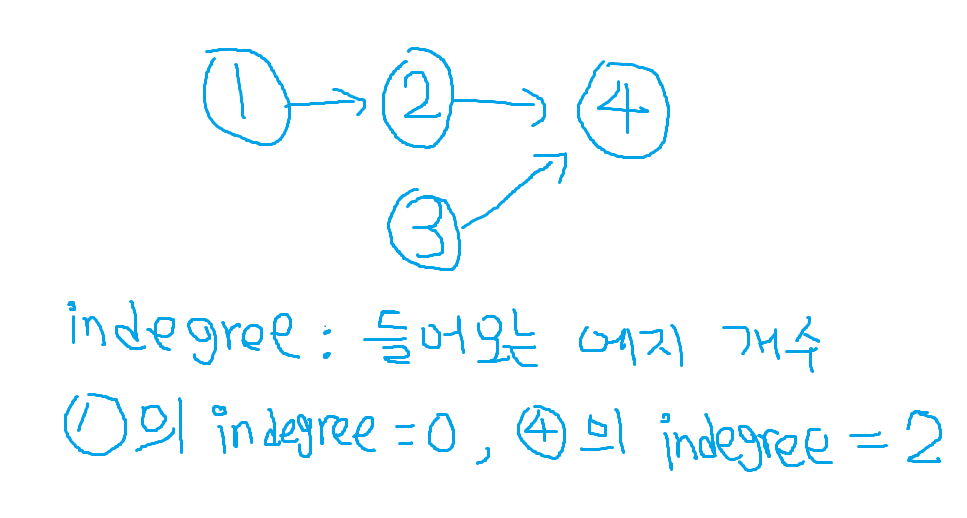 ① → ② → ④
③
indegree : 들어오는 에지 개수
①의 indegree = 0, ④의 indegree = 2